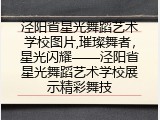 泾阳省星光舞蹈艺术
学校图片,璀璨舞者,
星光闪耀——泾阳省
星光舞蹈艺术学校展
示精彩舞技